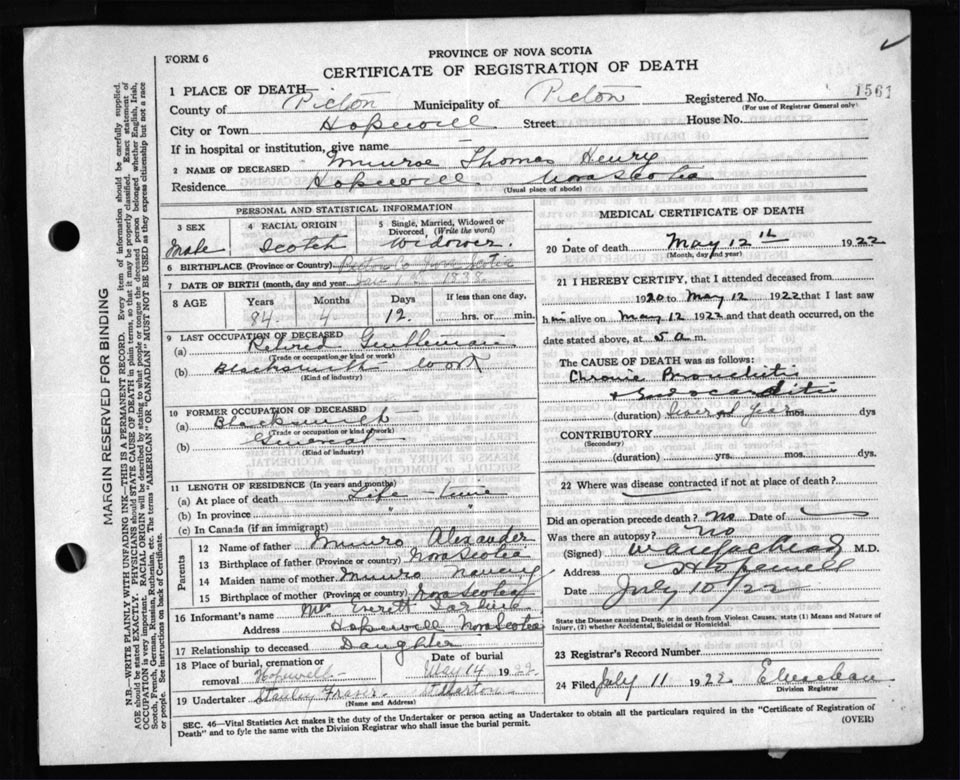 FORM 6
PROVINCE OF NOVA SCOTIA
CERTIFICATE OF REGISTRATION OF DEATH
1 PLACE OF DEATH
County of Pictou Municipality of Pictou Registered No. 1561
(For use of Registrar General only)
City or Town Hopewell Street House No.
If in hospital or institution, give name
2 NAME OF DECEASED Munroe Thomas Henry
Residence Hopewell Nova Scotia
(Usual place of abode)
PERSONAL AND STATISTICAL INFORMATION
3 SEX
4 RACIAL ORIGIN
5 Single, Married, Widowed or Divorced, (Write the word)
Male Scotch Widower.
6 BIRTHPLACE (Province or Country) Pictou Co Nova Scotia
7 DATE OF BIRTH (month, day and year) Jan 1838
8 AGE Years Months Days If less than one day,
84. 4 12. hrs. or min.
9 LAST OCCUPATION OF DECEASED
(a) Retired Gentleman
(Trade or occupation or kind or work)
(b) Blacksmith work
(Kind of industry)
10 FORMER OCCUPATION OF DECEASED
(a) Blacksmith
(Trade or occupation or kind of work)
(b) General
(Kind of industry)
11 LENGTH OF RESIDENCE (In years and months)
(a) At place of death Life-time
(b) In province " "
(c) In Canada (if an immigrant)
Parents
12 Name of father Munro Alexander
13 Birthplace of father (Province or country) Nova Scotia
14 Maiden name of mother Munro Nancy
15 Birthplace of mother (Province or country) Nova Scotia
16 Informant's name Mrs Everett
Address Hopewell Nova Scotia
17 Relationship to deceased Daughter
18 Place of burial, cremation or removal Hopewell Date of burial May 14 1922
19 Undertaker Stanley Fraser
(Name and Address)
MEDICAL CERTIFICATE OF DEATH
20 Date of death May 12th 1922
(Month, day and year)
21 I HEREBY CERTIFY, that I attended deceased from
1920 to May 12 1922 that I last saw
him alive on May 12 1922 and that death occurred, on the
date stated above, at 5 a m.
The CAUSE OF DEATH was as follows:
Chronic Bronchitis
(duration) Several years mos. dys
CONTRIBUTORY
(Secondary)
(duration) yrs. mos. dys.
22 Where was disease contracted if not at place of death?
Did an operation precede death? No Date of
Was there an autopsy? No
(Signed) M.D.
Address Hopewell
Date July 10/22
State the Disease causing Death, or in death from Violent Causes, state (1) Means and Nature of Injury, (2) whether Accidental, Suicidal or Homicidal.
23 Registrar's Record Number
24 Filed July 11 1922
Division Registrar
SEC. 46—Vital Statistics Act makes it the duty of the Undertaker or person acting as Undertaker to obtain all the particulars required in the "Certificate of Registration of
Death" and to fyle the same with the Division Registrar who shall issue the burial permit.
(OVER)
MARGIN RESERVED FOR BINDING
N.B.—WRITE PLAINLY WITH UNFADING INK—THIS IS A PERMANENT RECORD. Every item of information should be carefully supplied.
AGE should be stated EXACTLY. PHYSICIANS should STATE CAUSE OF DEATH in plain terms, so that it may be properly classified. Exact statement of
OCCUPATION is very important. RACIAL ORIGIN will be described by stating to what people or tongue the deceased person belonged whether English, Irish,
Scotch, French, German, Russian, Ruthenian, etc. The terms "AMERICAN" OR "CANADIAN" MUST NOT BE USED as they express citizenship but not a race
or people. See instructions on back of Certificate.